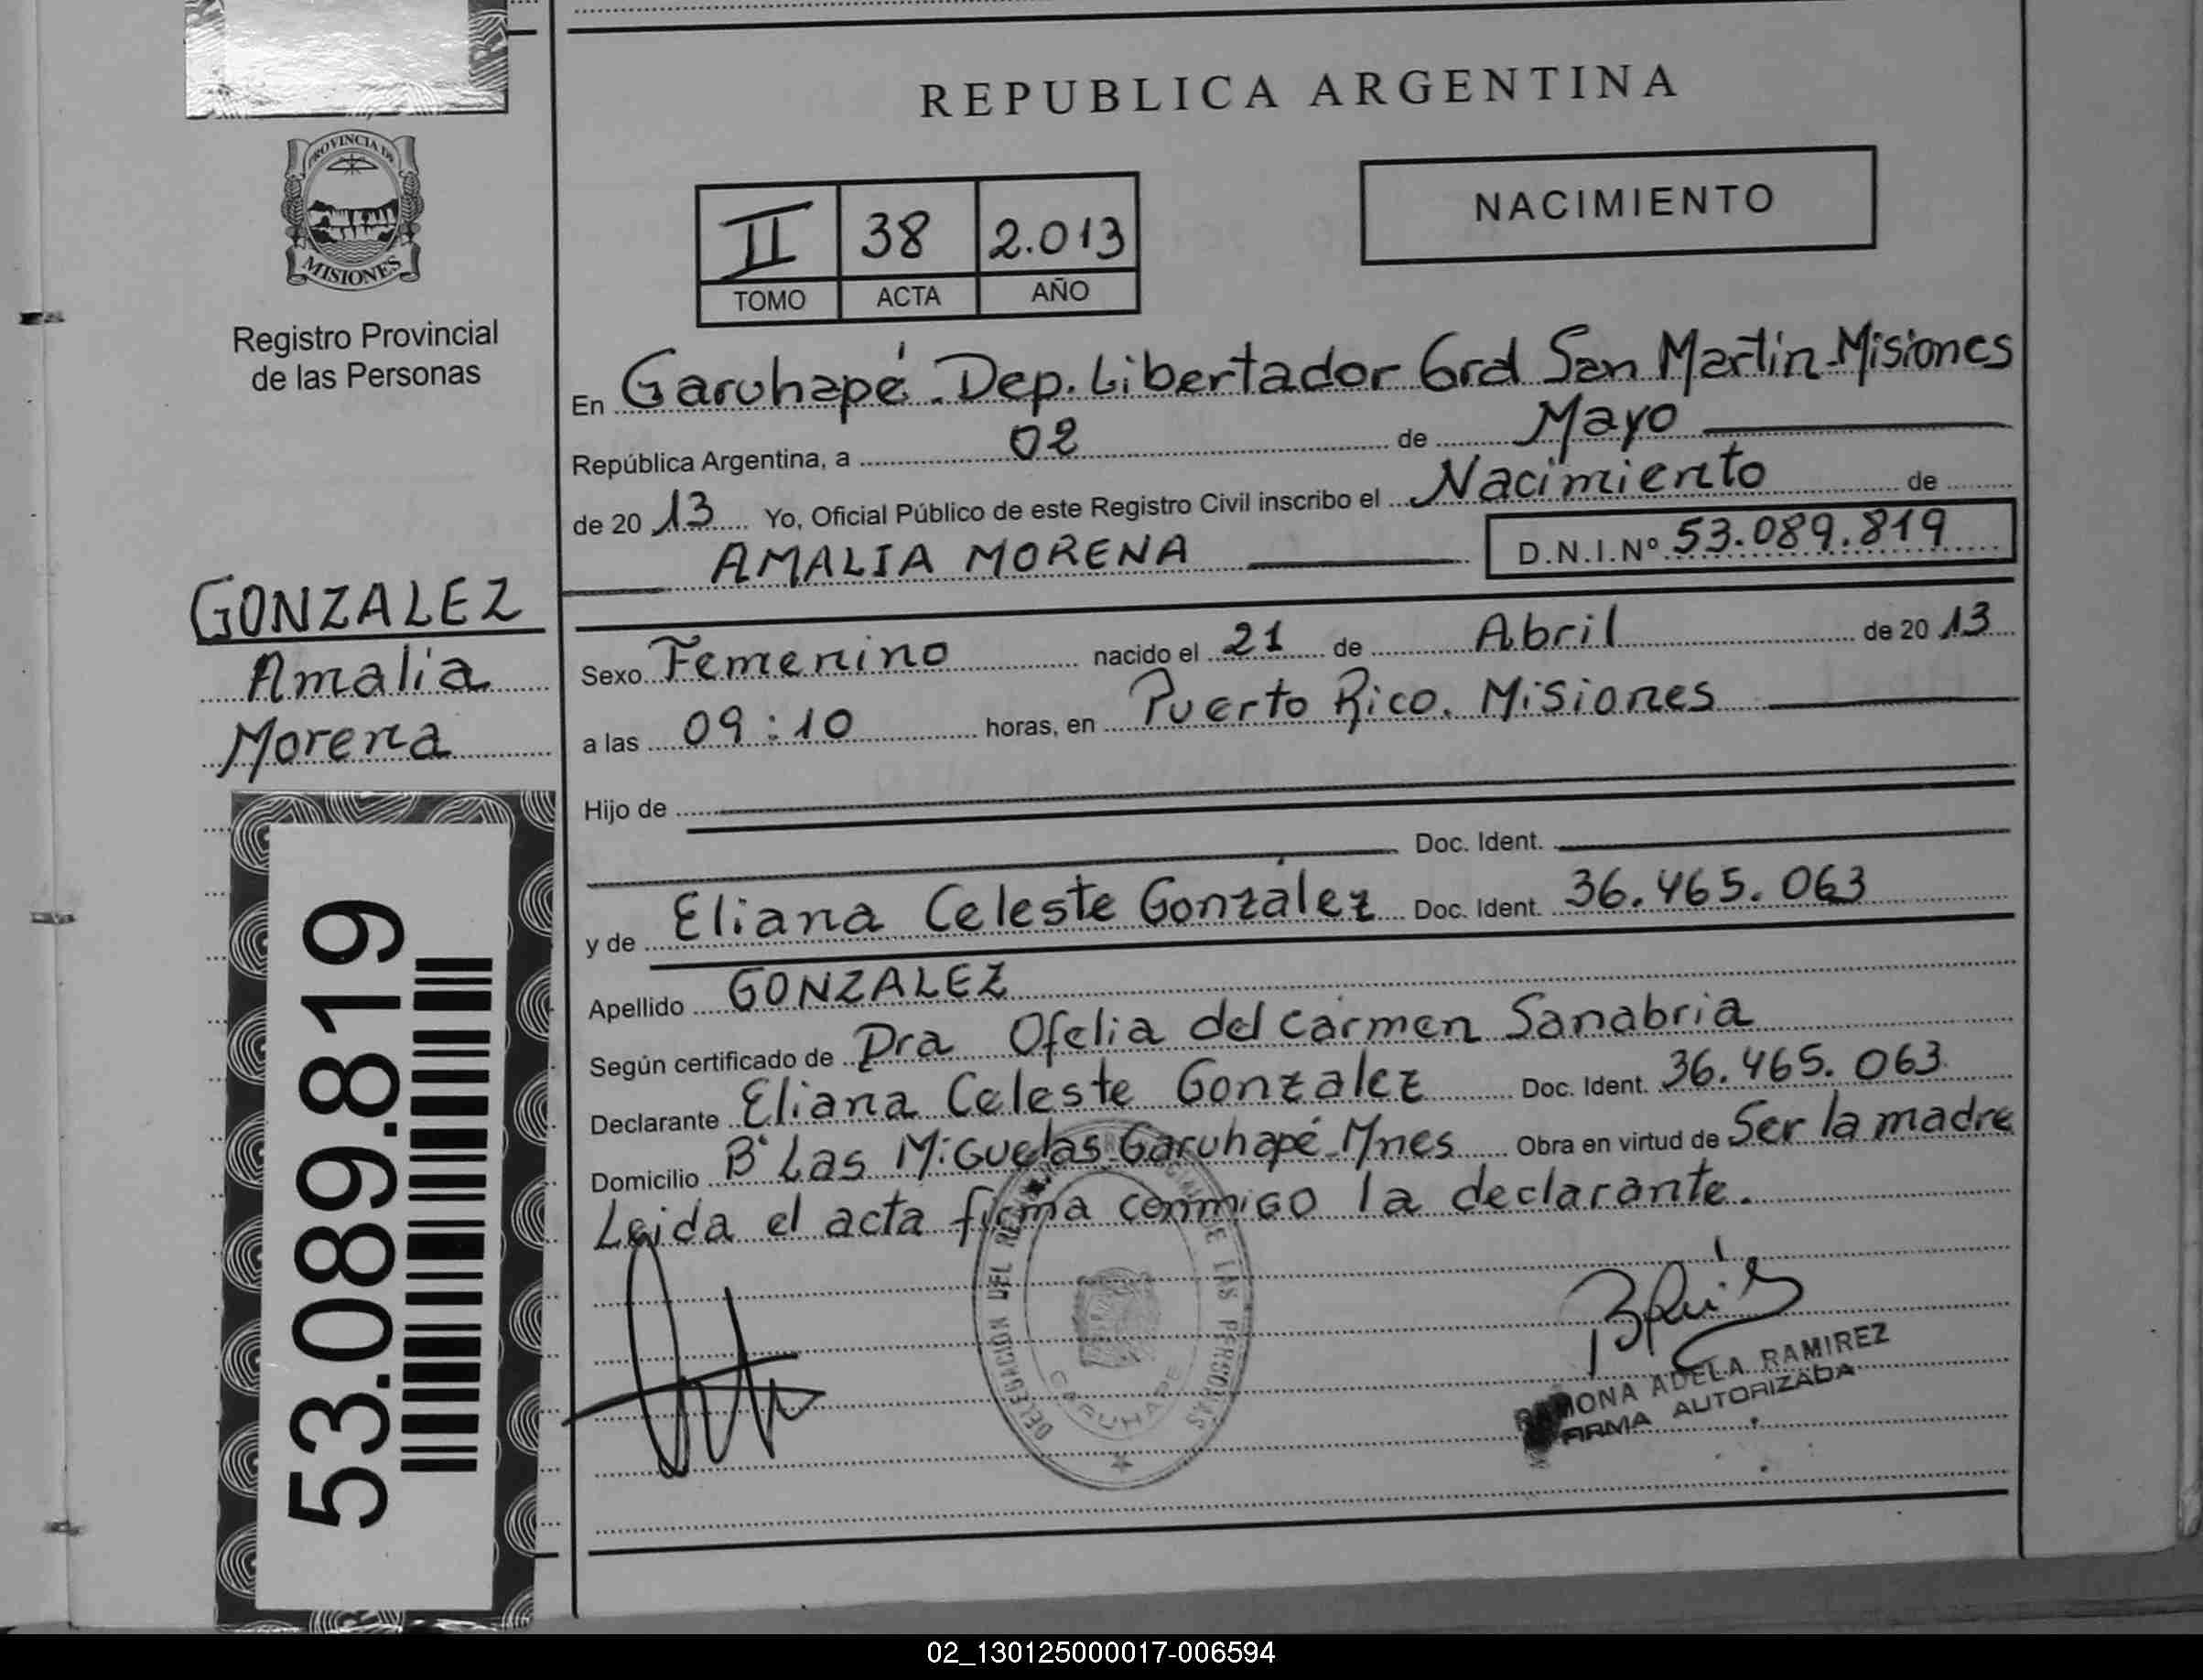 REPUBLICA ARGENTINA
PROVINCIA DE
MISIONES
Registro Provincial
de las Personas
II 38 2.013
TOMO ACTA AÑO
NACIMIENTO
En Garuhapé. Dep. Libertador Grd San Martin-Misiones
República Argentina, a 02 de Mayo
de 20 13 Yo, Oficial Público de este Registro Civil inscribo el Nacimiento de
AMALIA MORENA D.N.I.Nº 53.089.819
GONZALEZ
Amalia
Morena
Sexo Femenino nacido el 21 de Abril de 20 13
a las 09:10 horas, en Puerto Rico. Misiones
Hijo de
Doc. Ident.
y de Eliana Celeste González Doc. Ident. 36.465.063
Apellido GONZALEZ
Según certificado de Dra Ofelia del carmen Sanabria
Declarante Eliana Celeste Gonzalez Doc. Ident. 36.465.063
Domicilio B° Las Miguelas-Garuhapé-Mnes Obra en virtud de Ser la madre
Leida el acta firma conmigo la declarante.
53.089.819
DELEGACION DEL REGISTRO DE LAS PERSONAS
GARUHAPE
RAMONA ADELA RAMIREZ
FIRMA AUTORIZADA
02_130125000017-006594